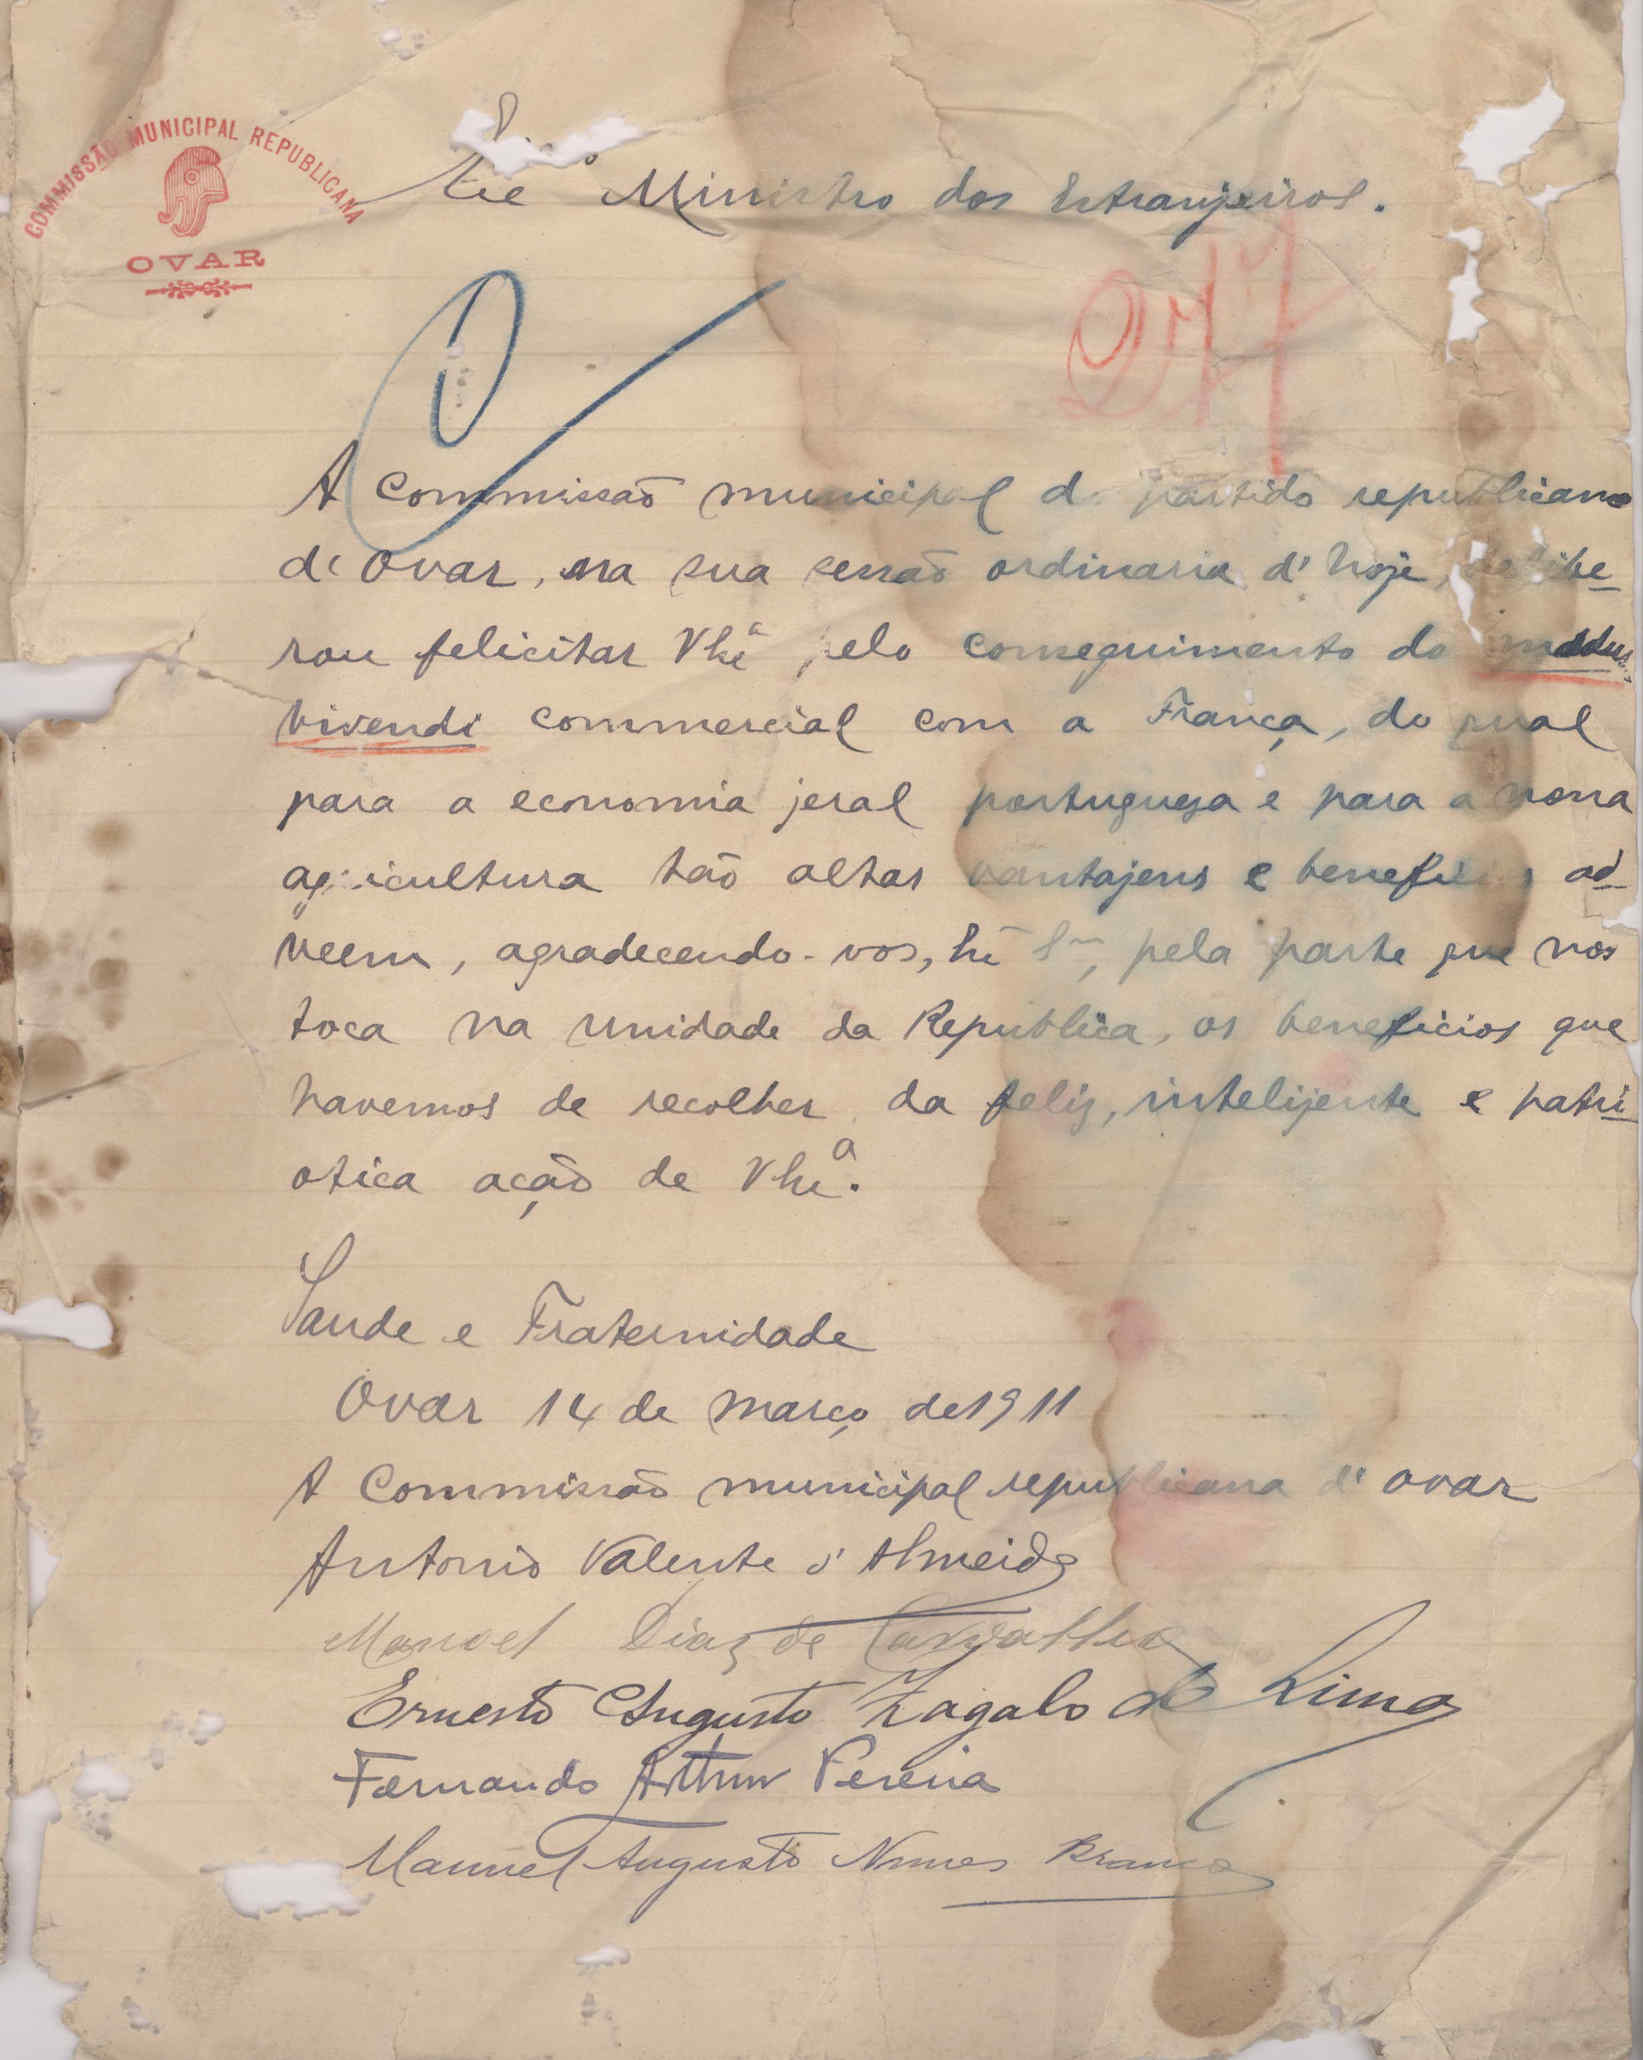 COMMISSÃO MUNICIPAL REPUBLICANA
OVAR
Ministro dos Estranjeiros.
A Commissão municipal do partido republicano
d'Ovar, na sua sessão ordinaria d'hoje, delibe-
rou felicitar VExª pelo conseguimento do modus
vivendi commercial com a França, do qual
para a economia jeral portuguesa e para a nossa
agricultura tão altas vantajens e beneficios ad-
veem, agradecendo-vos, Exmo Snr, pela parte que nos
toca na unidade da Republica, os beneficios que
havemos de recolher da feliz, intelijente e patri-
otica ação de VExª.
Saude e Fraternidade
Ovar 14 de março de 1911
A Commissão municipal republicana d'Ovar
Antonio Valente d'Almeida
Manoel Dias de Carvalho
Ernesto Augusto Zagalo de Lima
Fernando Arthur Pereira
Manuel Augusto Nunes Branco